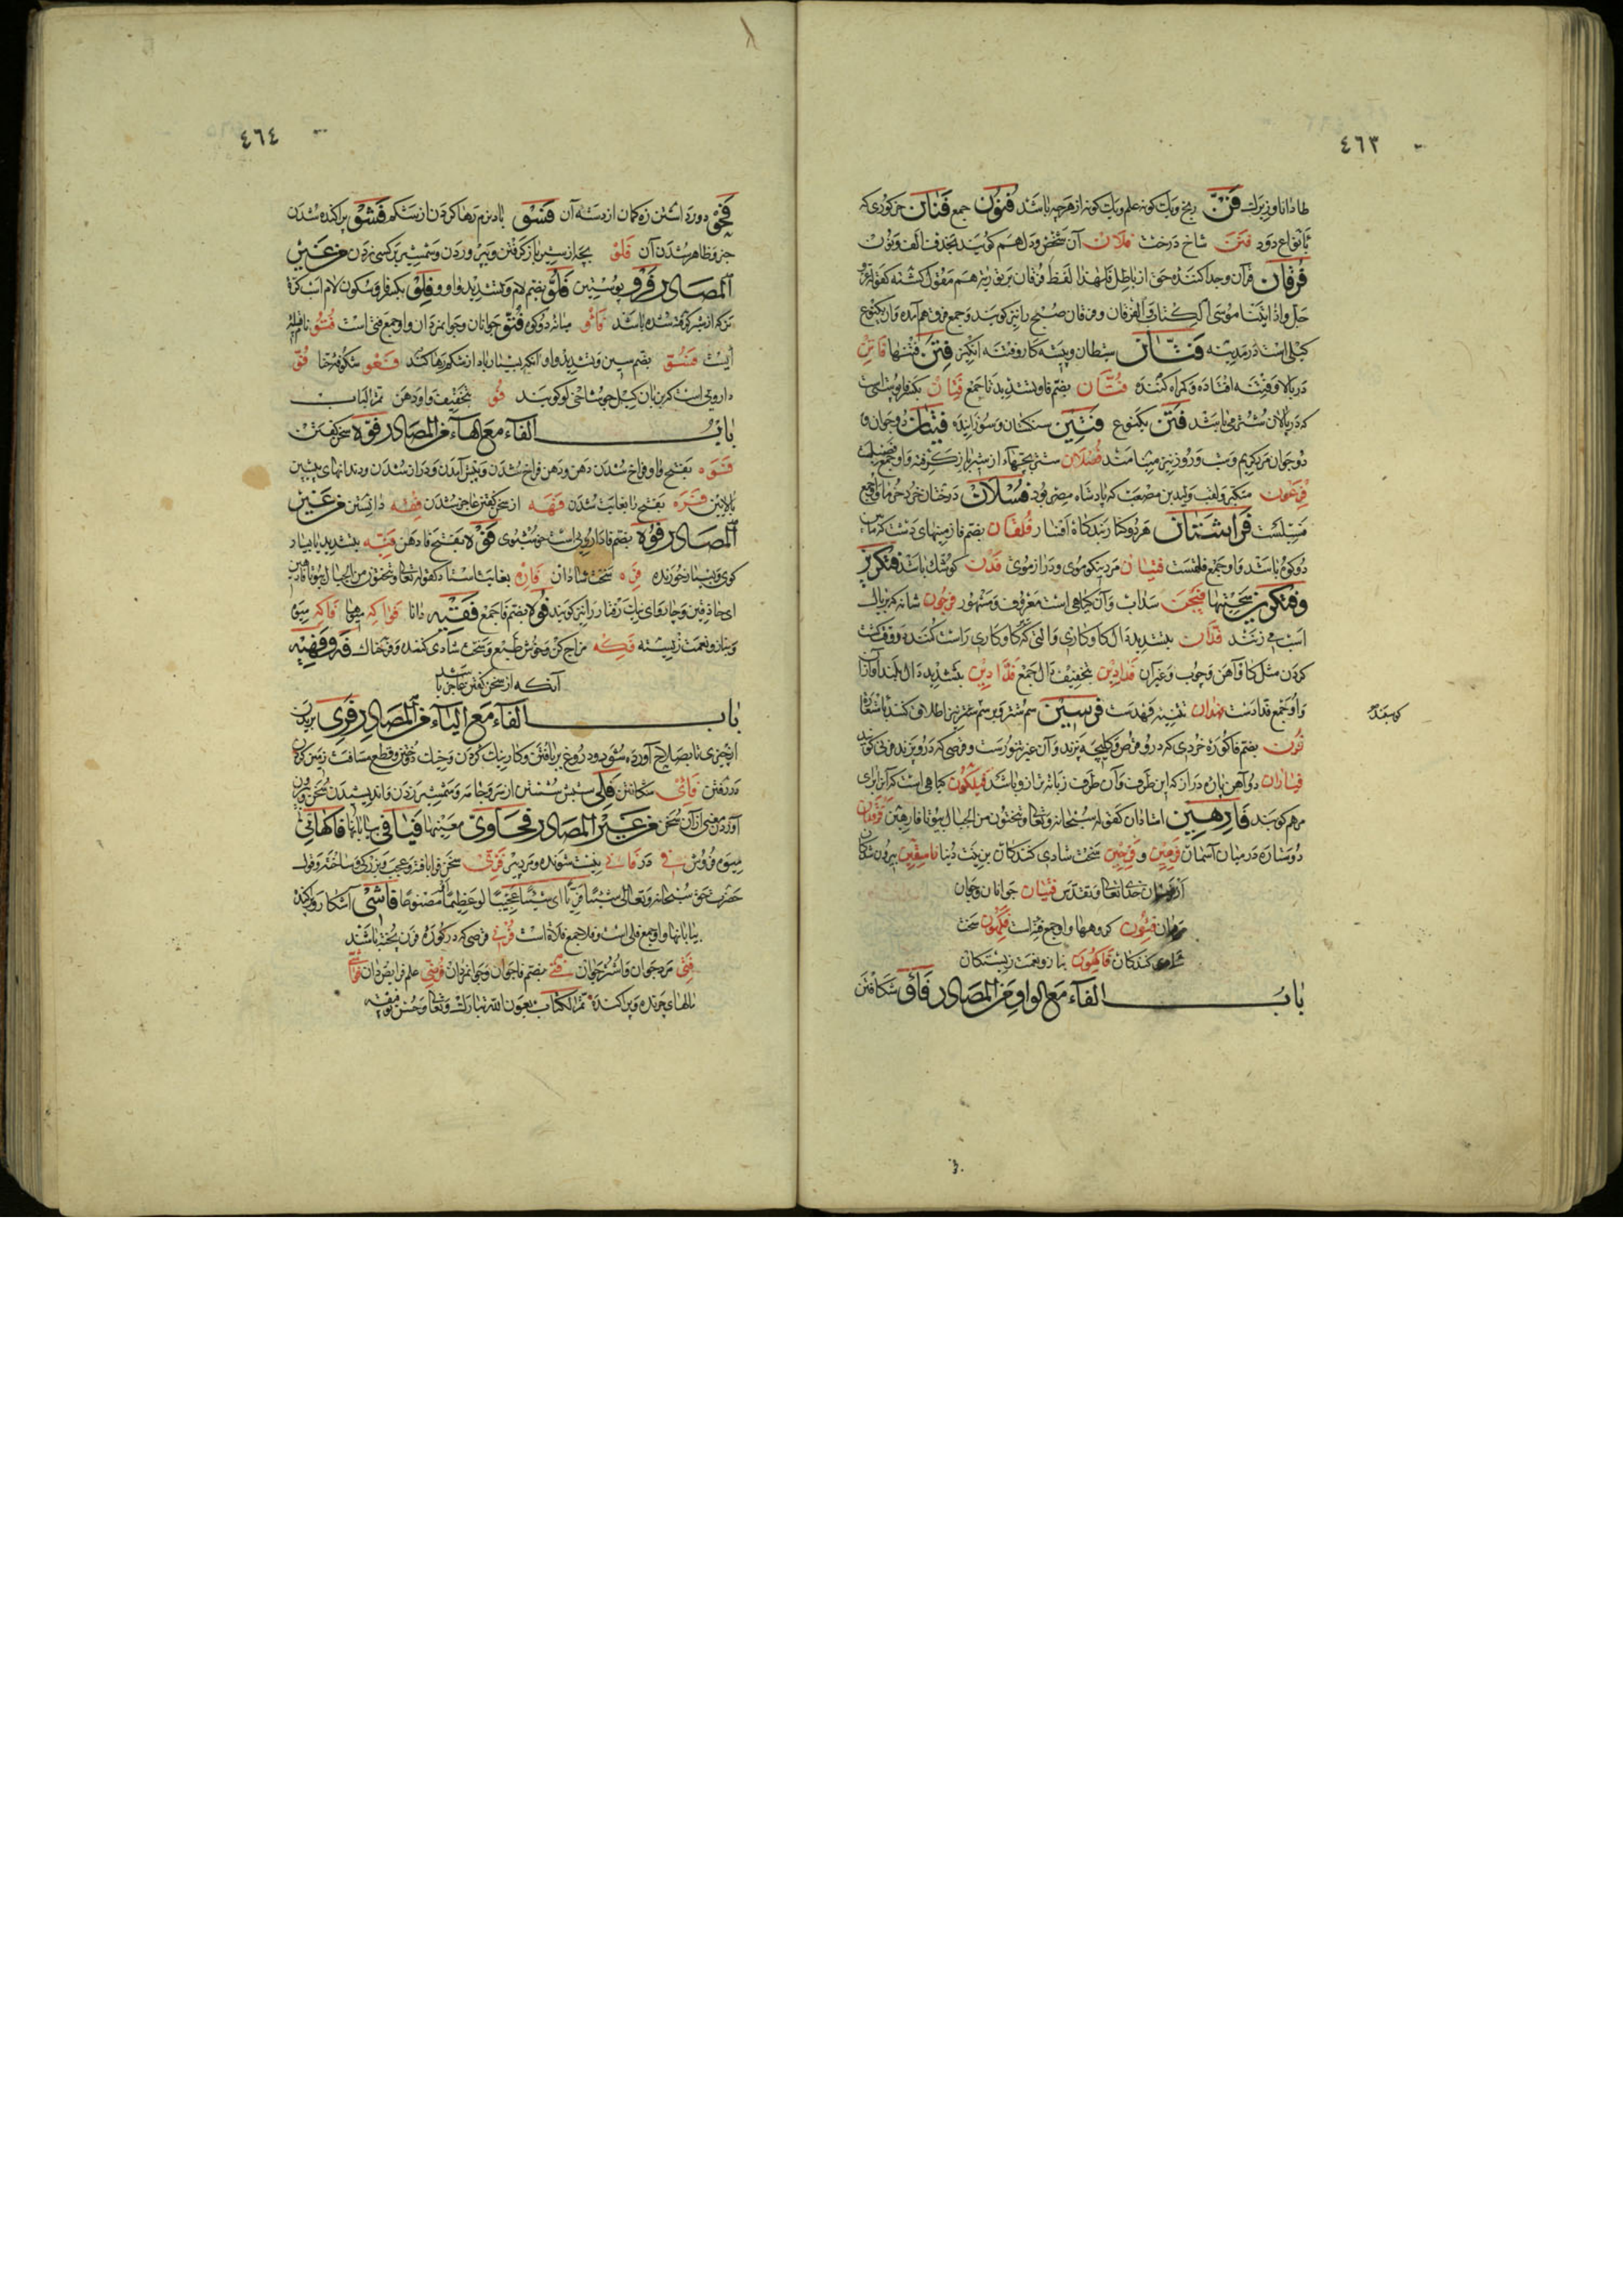 ٤٦٣
طا دانا و زیرک فَنّ رنج و یک کونه علم و یک کونه از هرچه باشد فنون جمع فنان خرکوری که
بانواع دود فنن شاخ درخت فلان آن شخص و دل هم کویند بحذف الف و نون
فرقان قرآن و جدا کننده حق از باطل فلهذا لفظ فرقان بر توریة هم مقول کشته کقوله عز و
جل و اذ اتینا موسی الکتاب و الفرقان و فرقان صبح را نیز کویند و جمع فرق هم آمده و آن یکنوع
کیلی است در مدینه فتّان شیطان و پیشه کار و فتنه انکیز فتن فتنها فاتن
در بلا و فتنه افتاده و کمراه کننده فتّان بضم فا و تشدید تا جمع فتان بکسر فا پوششی
که در پالان شتر می باشد فتن یکنوع فتین سنکستان و سوزانیده فتیان دو جوان و
دو جوان مرد کریم و شب و روز نیز فصلان شتر بچهها از شیر باز کرفته و او جمع فصیل است
فرعون متکبر و لقب ولید بن مصعب که پادشاه مصر بود فسلان درختان خرد خرما و او جمع
فسیلست فراشتان هر دو کنار بند کاه افسار فلقان بضم فا زمینهای پست
دو کوه باشد و او جمع فلقست فینان مرد نیکو موی و دراز موی فدن کوشک باشد فتکرین
و فتکرین سختیها فیجن سداب و آن کیاهی است معروف و مشهور فرجون شانه که بر یال
اسب می زنند فدّان بتشدید دال کاو کاری و آلتی که کاو کاری راست کنند و وقف کشت
کردن مثل کاو آهن و چوب و غیر آن فدادین بتخفیف دال جمع فدّادین بتشدید دال بلند آوازان
و او جمع فدادست فهدان تثنیه فهدست فرسین سم شتر و بر سم غیر نیز اطلاق کنند باستعاره
فرن بضم فا کوره خردی که در و قرص و کلیچه پزند و آن غیر تنورست و قرصی که در و پزند فرنی کویند
فیاران دو آهن پاره دراز که این طرف و آن طرف زبانه ترازو باشد فیلکون کیاهی است که آن برای
مرهم کویند فارهین استادان کقوله سبحانه و تعالی و تنحتون من الجبال بیوتا فارهین فرقدان
دو ستاره در میان آسمان فرحین سخت شادی کنندکان بزینت دنیا فاسقین بیرون شدکان
از فرمان خدای تعالی و تقدس فتیان جوانان و جوان
مردان فئون کروهها و او جمع فئه است فکهون سخت
شادی کنندکان فاکهون بناز و نعمت زیستکان
باب الفاء مع الواو من المصادر فأو شکافتن
٤٦٤
دور داشتن زه کمان از دسته آن فسو باد نرم رها کردن از شکم فشو پراکنده شدن
خبر و ظاهر شدن آن فلو بچه از شیر باز کرفتن و پروردن و شمشیر بر کسی زدن من غیر
المصادر فرو پوستین فلو بضم لام و تشدید واو و فلو بکسر فا و سکون لام اسب کره
نر که از شیر کرفته شده باشد فأو میانه دو کوه فتو جوانان و جوانمردان و او جمع فتی است فتو
است فسو بضم سین و تشدید واو آنکه بسیار باد از شکم رها کند فغو شکوفه حنا فو
دارویی است که فو بتخفیف واو دهن تم الباب
باب الفاء مع الهاء من المصادر فوه سخن کفتن
فوه بفتح واو فراخ شدن دهن و دهن فراخ شدن و پیش آمدن و دراز شدن دندانهای پیشین
بالایین فره بفتح را بغایت شدن فهه از سخن کفتن عاجز شدن فقه دانستن من غیر
المصادر فوه بضم فا دارویی است فوه بفتح فا دهن فیّه بتشدید یا بسیار
کوی و بسیار خورنده فره سخت شادان فاره بغایت استاد کقوله تعالی و تنحتون من الجبال بیوتا فارهین
ای حاذقین و چاروای نیک رفتار را نیز کویند فقیه دانا فواکه میوها فاکه میوه
و بناز و نعمت زیسته فکه مزاح کن و خوش طبع و سخت شادی کننده و فرحناک فه و فهیه
آنکه از سخن کفتن عاجز باشد
باب الفاء مع الیاء من المصادر فری بریدن
از چیزی تا بصلاح آورده شود و دروغ بر بافتن و کار نیک کردن و خیک دوختن و قطع مسافت زمین کردن
و رفتن فأی شکافتن فلی شپش جستن از سر و جامه و شمشیر زدن و اندیشیدن سخن
آوردن معنی از آن سخن من غیر المصادر فحاوی معینها فیافی بیابانها فاکهانی
میوه فروش فی در فانی نیست شونده و مرد پیر فری سخن فرا بافته و عجب و بزرک و ساخته و قول
حضرت حق سبحانه و تعالی شیئا فریا ای شیئا عجیبا او عظیما او مصنوعا فاشی آشکارا و پراکنده
بیابانها و او جمع فلی است و فلا جمع فلاة است فرنی قرصی که در کوره فرن پخته باشند
فتی مرد جوان و اشتر جوان فتی بضم فا جوانان و جوانمردان فرضی علم فرایض دان فواشی
مالهای چرنده و پراکنده تم الکتاب بعون الله تبارک و تعالی و حسن توفیقه